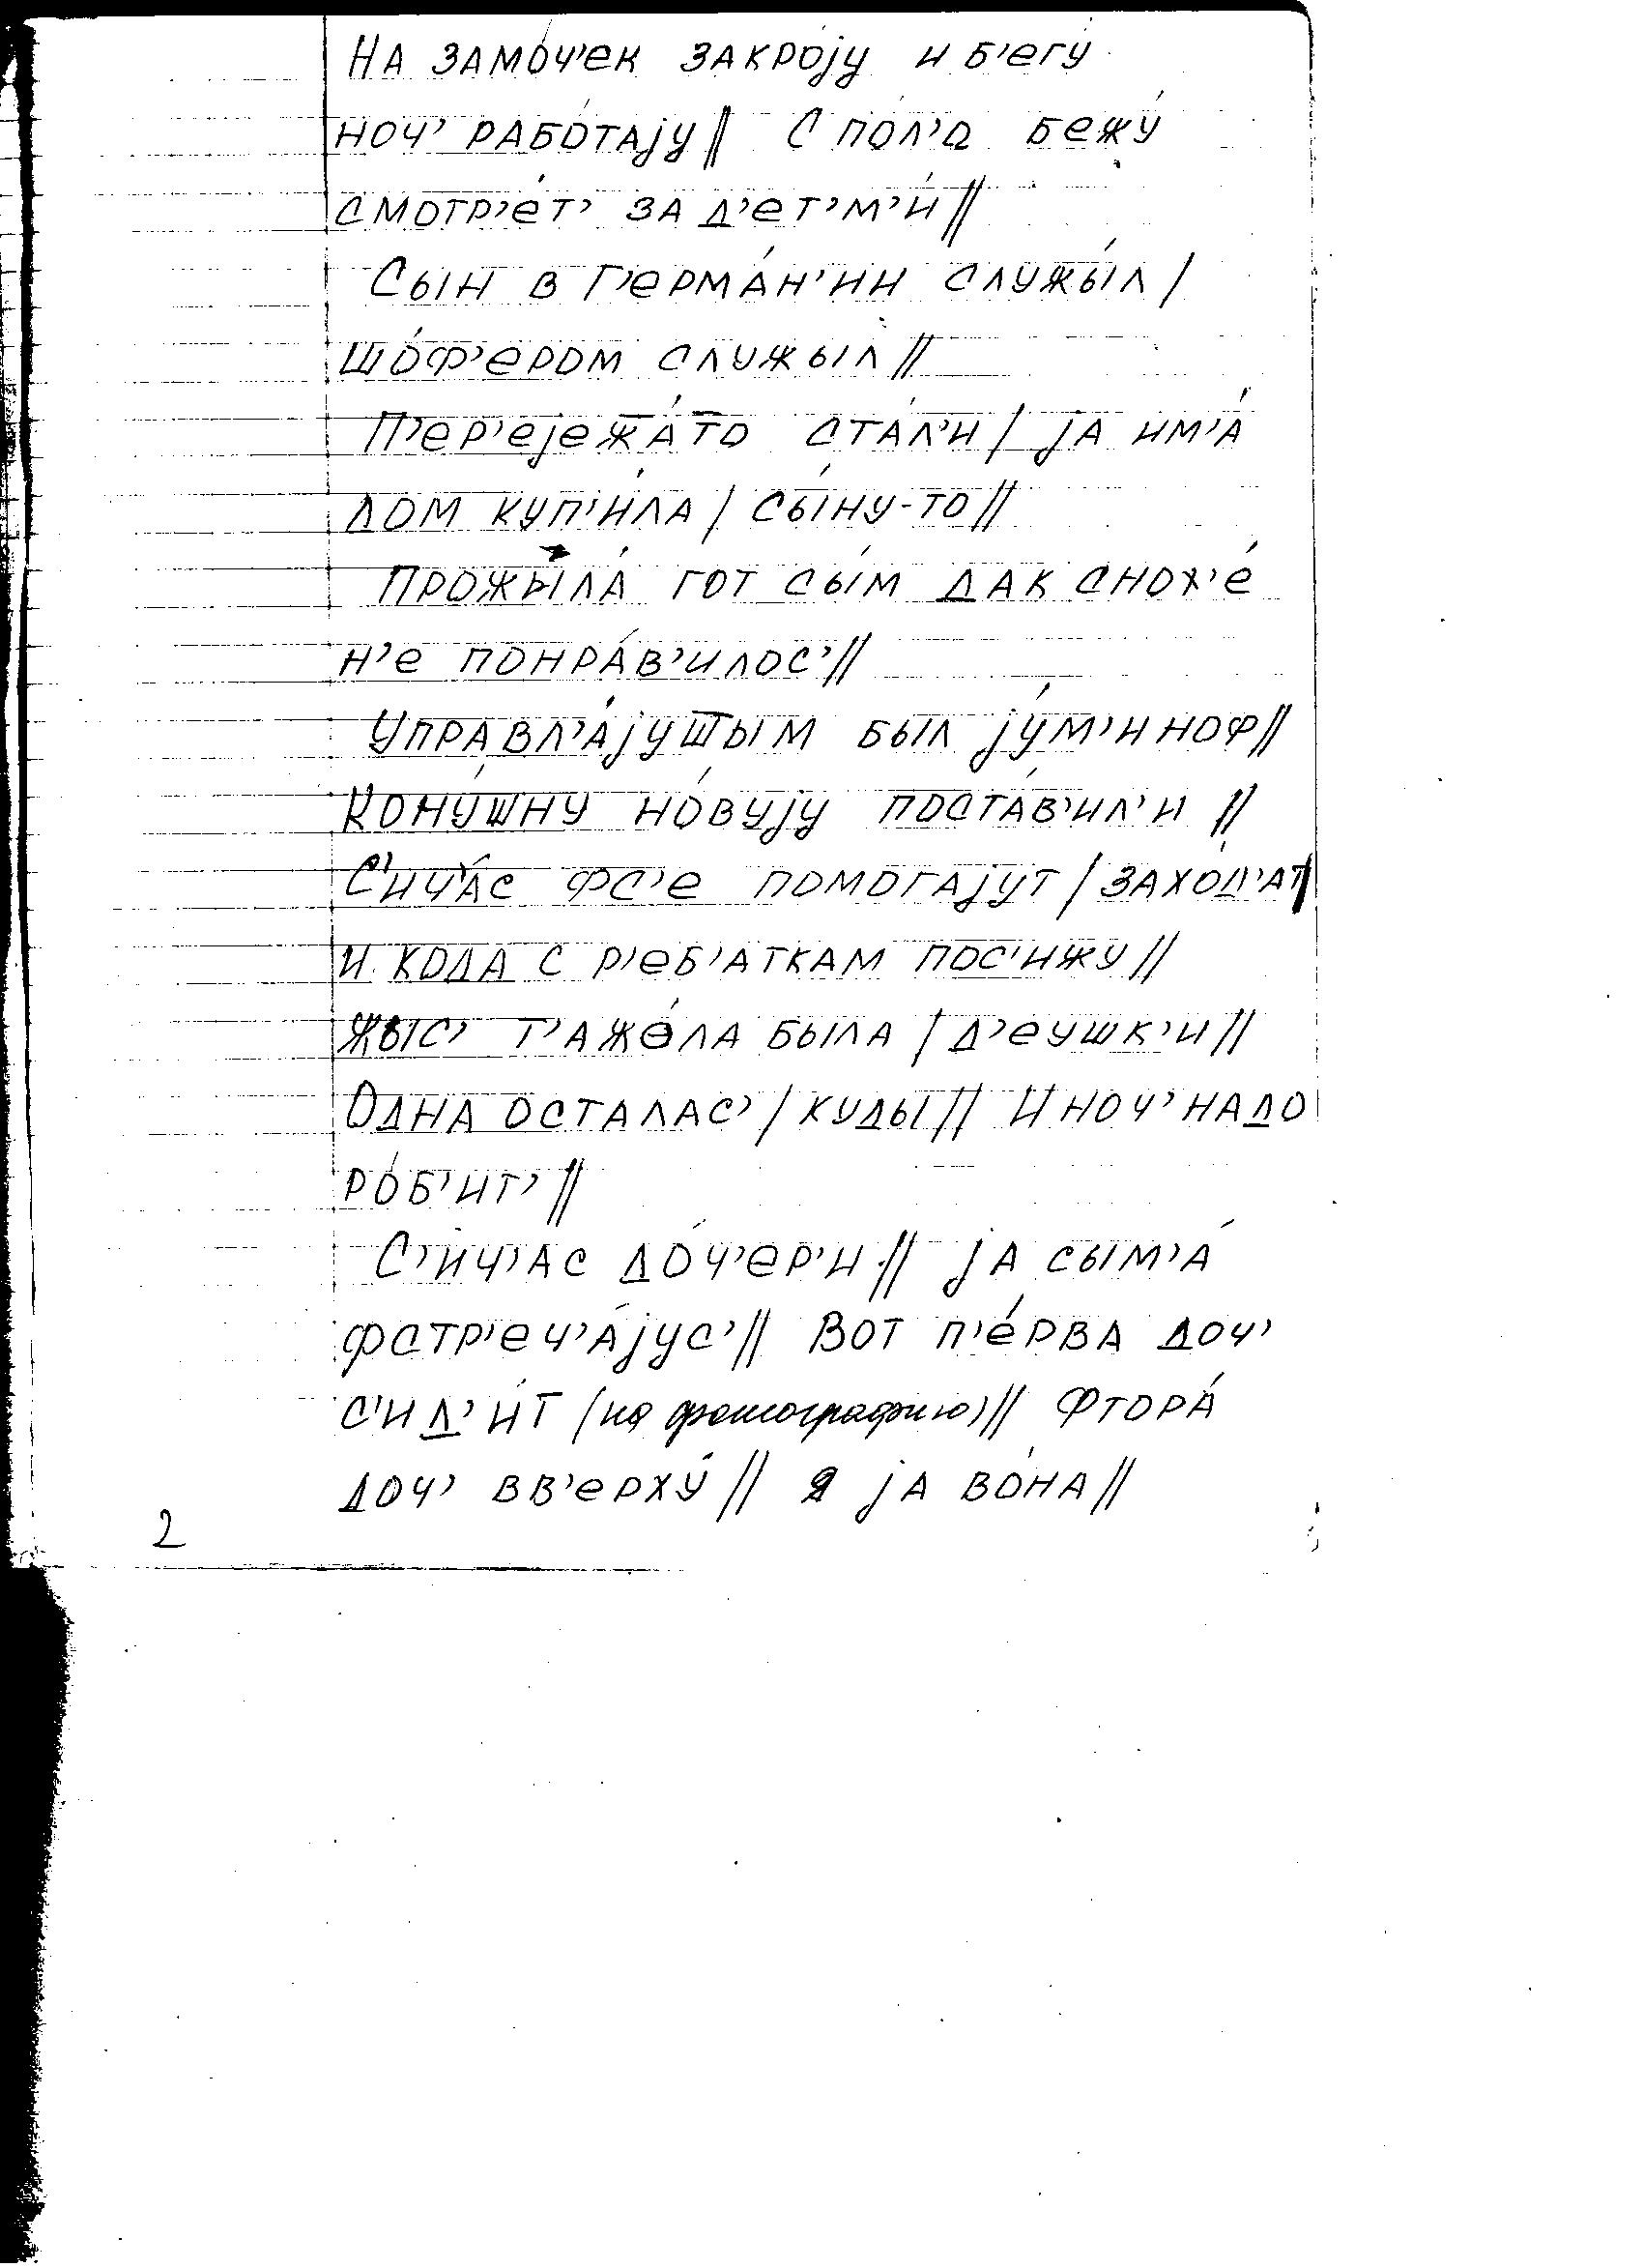 На замо́ч'ек закро́jу и б'егу́
ноч' рабо́таjу// С по́л'а бежу́
смотр'е́т' за д'ет'м'и́//
Сын в Г'ерма́н'ии служы́л/
шо́ф'ером служыл//
П'ер'еjежа́т̅о ста́л'и/ jа им'а́
дом куп'и́ла/ сы́ну-то//
Прожыла́ гот сы́м дак снох'е́
н'е понра́в'илос'//
Управл'а́jуш̅ым был jу́м'инноф//
Кону́шну но́вуjу поста́в'ил'и //
С'ич'а́с фс'е помогаjут/ захо́д'ат/
и кода с р'еб'аткам пос'ижу//
Жыс' т'ажо́ла была/ д'еушк'и//
Одна осталас'/ куды// И ноч' надо
ро́б'ит'//
С'ич'ас до́ч'ер'и// jа сым'а́
фстр'еч'а́jус'// Вот п'е́рва доч'
с'ид'и́т (на фотографию)// Фтора́
доч' вв'ерху́// jа во́на//
2